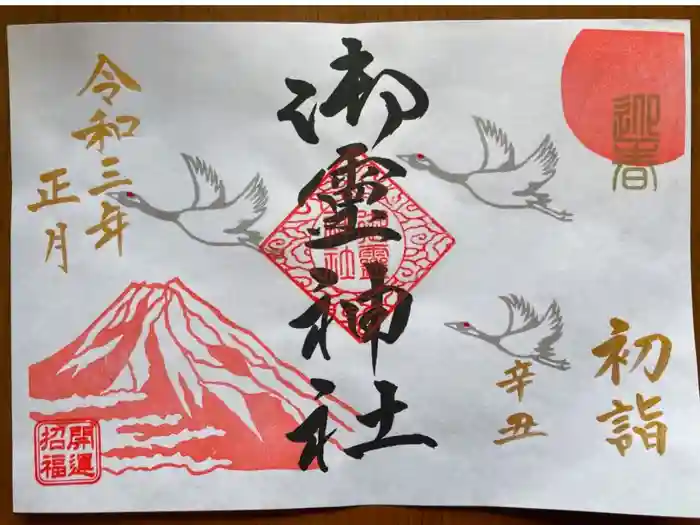 迎春
初詣
辛丑
御靈神社
御靈神社
令和三年
正月
開運
招福